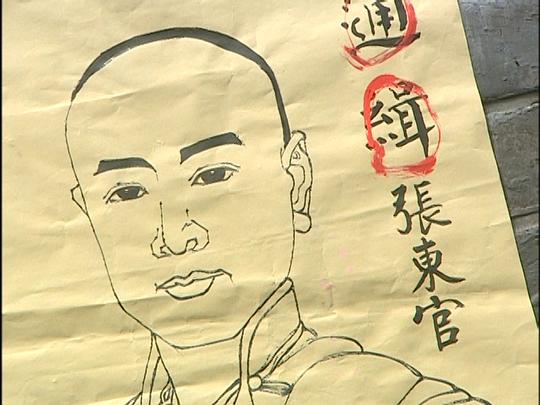 通緝張東官